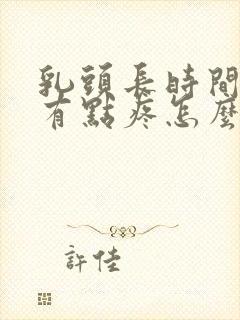 乳頭長時間
有點疼怎麼
許佳